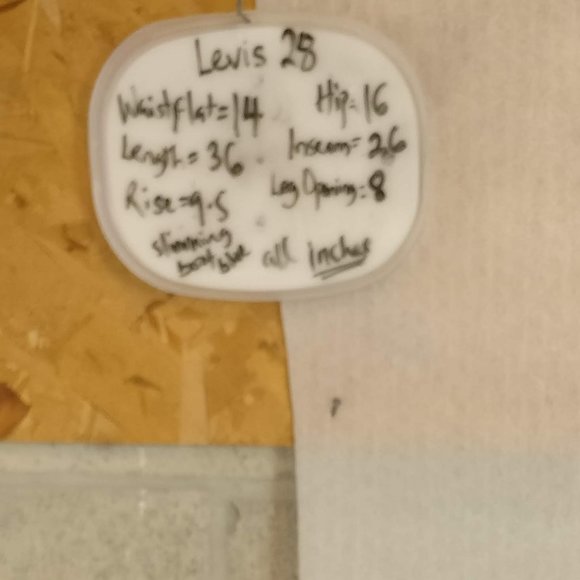 Levis 28
Waistflat=14 Hip=16
Length=36 Inseam=26
Rise=9.5 Leg Opening=8
slimming
boot blue all Inches